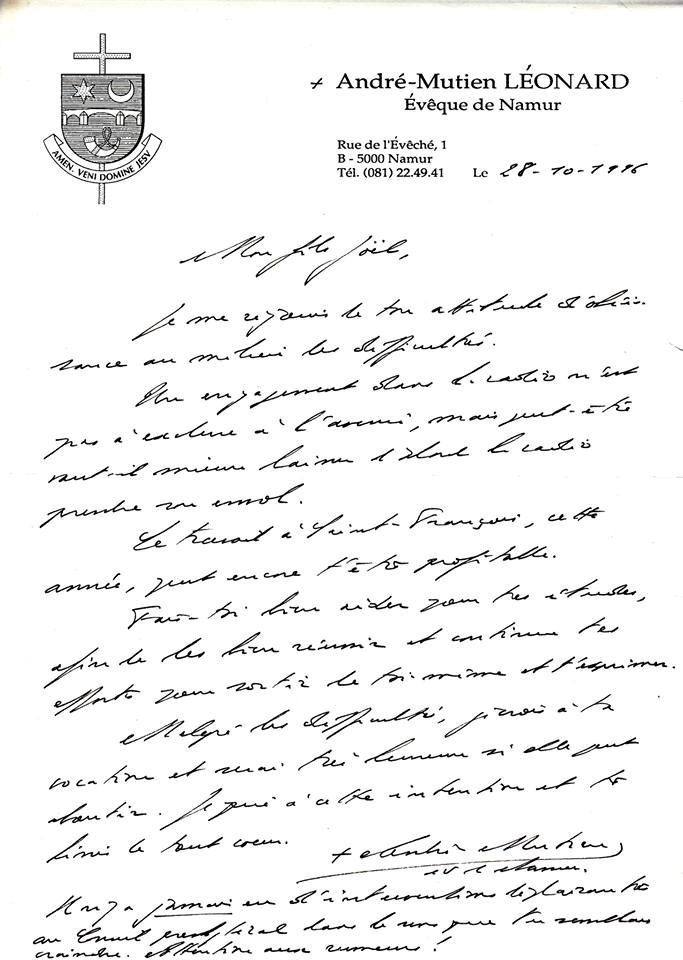 + André-Mutien LÉONARD
Évêque de Namur
Rue de l'Évêché, 1
B - 5000 Namur
Tél. (081) 22.49.41 Le 28-10-1996
AMEN. VENI DOMINE JESV
Mon fils Joël,
Je me réjouis de ton attitude d'obéis-
sance au milieu des difficultés.
Un engagement dans la radio n'est
pas à exclure à l'avenir, mais peut-être
vaut-il mieux laisser d'abord la radio
prendre son envol.
Le travail à Saint-François, cette
année, peut encore t'être profitable.
Fais-toi bien aider pour tes études,
afin de les bien réussir et continue tes
efforts pour sortir de toi-même et t'exprimer.
Malgré les difficultés, je crois à ta
vocation et serai très heureux si elle peut
aboutir. Je prie à cette intention et te
bénis de tout coeur.
+ André-Mutien
év. de Namur.
Il n'y a jamais eu d'interventions déplaisantes
au Conseil presbytéral dans le sens que tu sembles
craindre. Attention aux rumeurs !